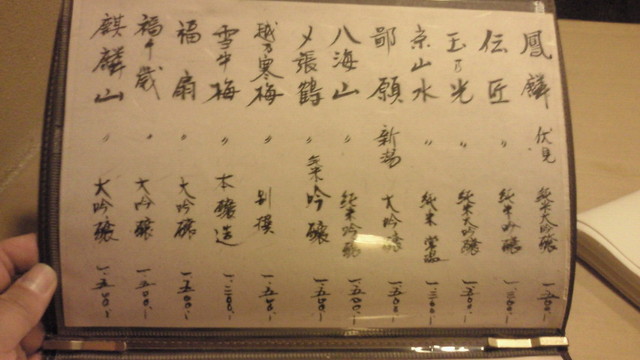 鳳麟 伏見 純米大吟醸 一、五〇〇、ー
伝匠 〃 純米吟醸 一、二〇〇、ー
玉乃光 〃 純米大吟醸 一、五〇〇、ー
京山水 〃 純米 一、二〇〇、ー
鄙願 新潟 大吟醸 一、五〇〇、ー
八海山 〃 純米吟醸 一、五〇〇、ー
〆張鶴 〃 純米吟醸 一、五〇〇、ー
越乃寒梅 〃 別撰 一、五〇〇、ー
雪中梅 〃 本醸造 一、二〇〇、ー
福扇 〃 大吟醸 一、五〇〇、ー
福千歳 〃 大吟醸 一、五〇〇、ー
麒麟山 〃 大吟醸 一、五〇〇、ー